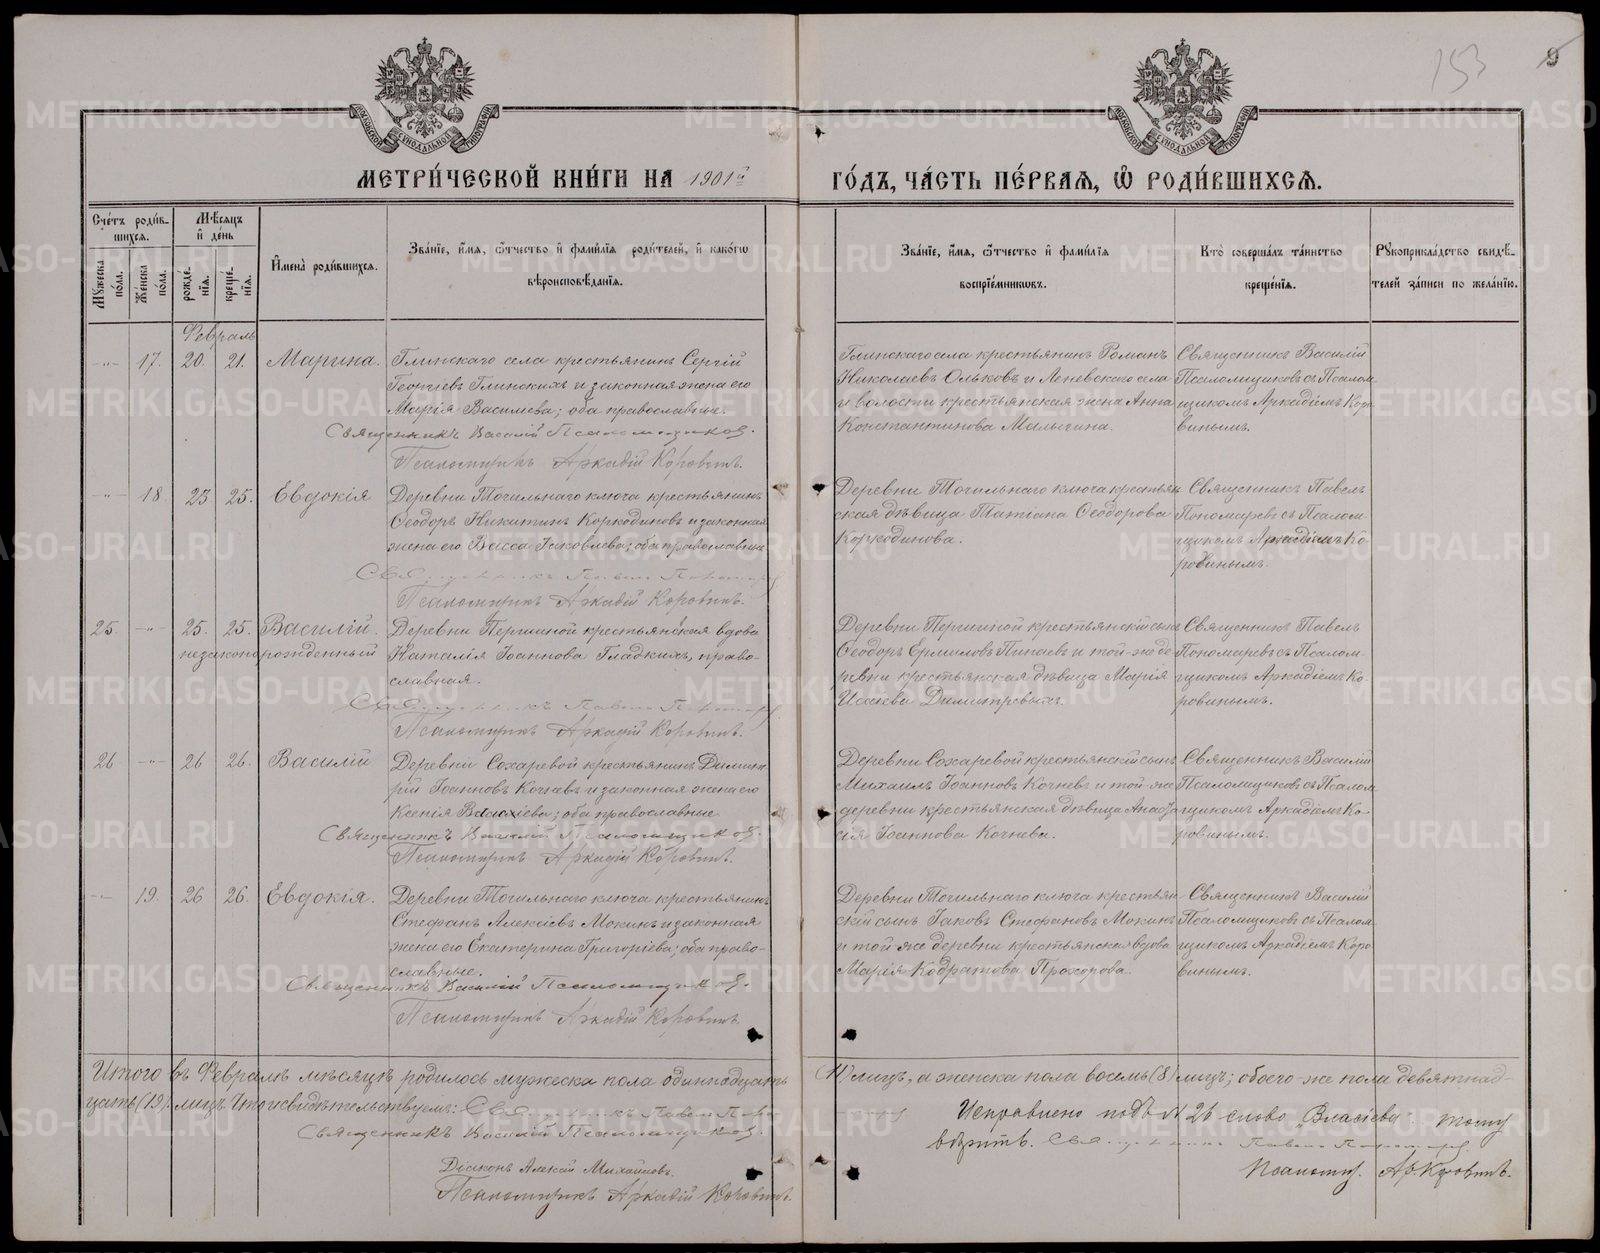 153
9
МЕТРИ́ЧЕСКОЙ КНИ́ГИ НА 1901й
ГО́ДЪ, ЧА́СТЬ ПЕ́РВАЯ, Ѽ РОДИ́ВШИХСЯ.
Сче́тъ роди́в-
шихся.
Мꙋжеска по́ла.
Же́нска по́ла.
Мѣ́сяцъ
и҆ де́нь
рожде́-
нїя.
креще́-
нїя.
И҆мена̀ роди́вшихся.
Зва́нїе, и҆́мя, ѻ҆́тчество и҆ фами́лїѧ роди́телей, и҆ како́гѡ
вѣроисповѣ́данїѧ.
Зва́нїе, и҆́мя, ѻ҆́тчество и҆ фами́лїѧ
воспрїе́мникѡвъ.
Кто̀ соверша́лъ та́инство
креще́нїѧ.
Рꙋкоприкла́дство свидѣ́-
телей за́писи по жела́нїю.
Февраль
-„- 17. 20. 21. Марина.
Глинскаго села крестьянинъ Сергій
Георгіевъ Глинскихъ и законная жена его
Марія Васильева; оба православные.
Священникъ Василій Псаломщиковъ.
Псаломщикъ Аркадій Коровинъ.
Глинскаго села крестьянинъ Романъ
Николаевъ Ольковъ и Леневскаго села
и волости крестьянская жена Анна
Константинова Малыгина.
Священникъ Василій
Псаломщиковъ съ Псалом-
щикомъ Аркадіемъ Коро-
винымъ.
-„- 18. 23 25. Евдокія
Деревни Точильнаго ключа крестьянинъ
Ѳеодоръ Никитинъ Коркодиновъ и законная
жена его Васса Іаковлева; оба православные
Священникъ Павелъ Пономаревъ
Псаломщикъ Аркадій Коровинъ.
Деревни Точильнаго ключа крестьян
ская дѣвица Татіана Ѳеодорова
Коркодинова.
Священникъ Павелъ
Пономаревъ съ Псалом-
щикомъ Аркадіемъ Ко-
ровинымъ.
25. -„- 25. 25. Василій.
незаконорожденный
Деревни Першиной крестьянская вдова
Наталія Іоаннова Гладкихъ, право-
славная.
Священникъ Павелъ Пономаревъ
Псаломщикъ Аркадій Коровинъ.
Деревни Першиной крестьянскій сынъ
Ѳеодоръ Ермиловъ Пинаевъ и той же де-
ревни крестьянская дѣвица Марія
Исакева Димитревыхъ.
Священникъ Павелъ
Пономаревъ съ Псалом-
щикомъ Аркадіемъ Ко-
ровинымъ.
26 -„- 26 26. Василій
Деревни Сохаревой крестьянинъ Димит-
рій Іоанновъ Кочневъ и законная жена его
Ксенія Власіева; оба православные
Священникъ Василій Псаломщиковъ.
Псаломщикъ Аркадій Коровинъ.
Деревни Сохаревой крестьянскій сынъ
Михаилъ Іоанновъ Кочневъ и той же
деревни крестьянская дѣвица Анаста-
сія Іоаннова Кочнева.
Священникъ Василій
Псаломщиковъ съ Псалом
щикомъ Аркадіемъ Ко-
ровинымъ.
-„- 19. 26 26. Евдокія.
Деревни Точильнаго ключа крестьянинъ
Стефанъ Алексіевъ Мокинъ и законная
жена его Екатерина Григоріева; оба право-
славные.
Священникъ Василій Псаломщиковъ.
Псаломщикъ Аркадій Коровинъ
Деревни Точильнаго ключа крестьян-
скій сынъ Іаковъ Стефановъ Мокинъ
и той же деревни крестьянская вдова
Марія Кодратова Прохорова.
Священникъ Василій
Псаломщиковъ съ Псалом
щикомъ Аркадіемъ Коро
винымъ.
Итого въ Февралѣ мѣсяцѣ родилось мужеска пола одиннадцать
(11) лицъ, а женска пола восемь (8) лицъ; обоего же пола девятнад-
цать (19) лицъ. Итого свидѣтельствуемъ: Священникъ Павелъ Поно
Священникъ Василій Псаломщиковъ.
Діаконъ Алексій Михайловъ.
Псаломщикъ Аркадій Коровинъ.
Исправлено подъ № 26 слово „Власіева" тому
вѣрить. Священникъ Павелъ Пономаревъ
Псаломщ. Ар. Коровинъ.
METRIKI.GASO-URAL.RU